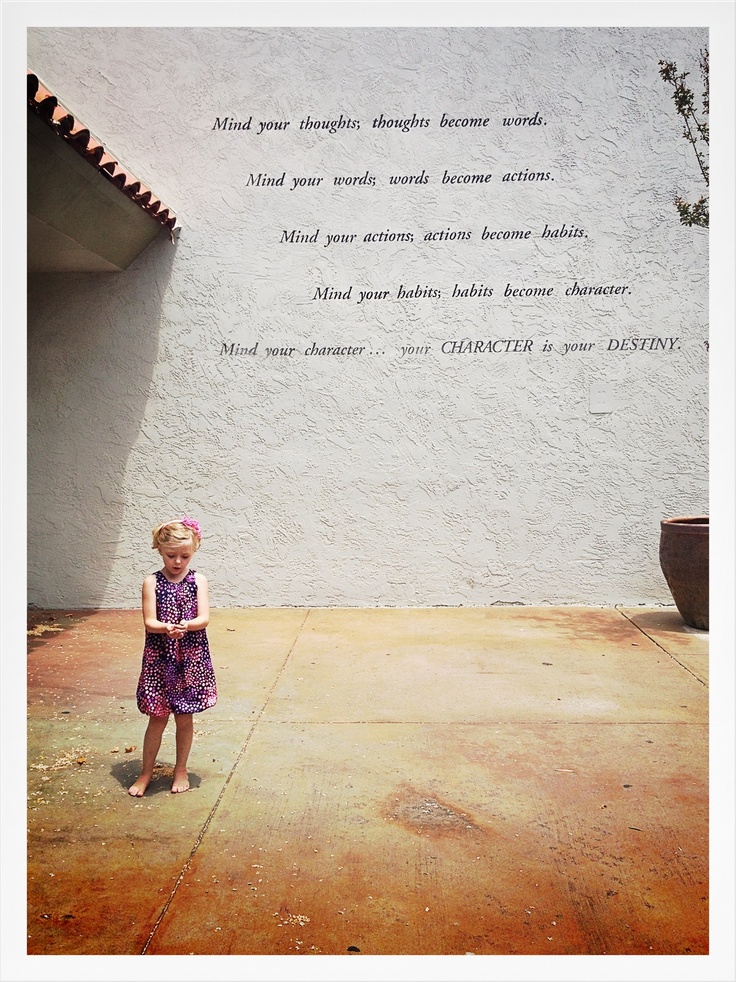 Mind your thoughts; thoughts become words.
Mind your words; words become actions.
Mind your actions; actions become habits.
Mind your habits; habits become character.
Mind your character... your CHARACTER is your DESTINY.